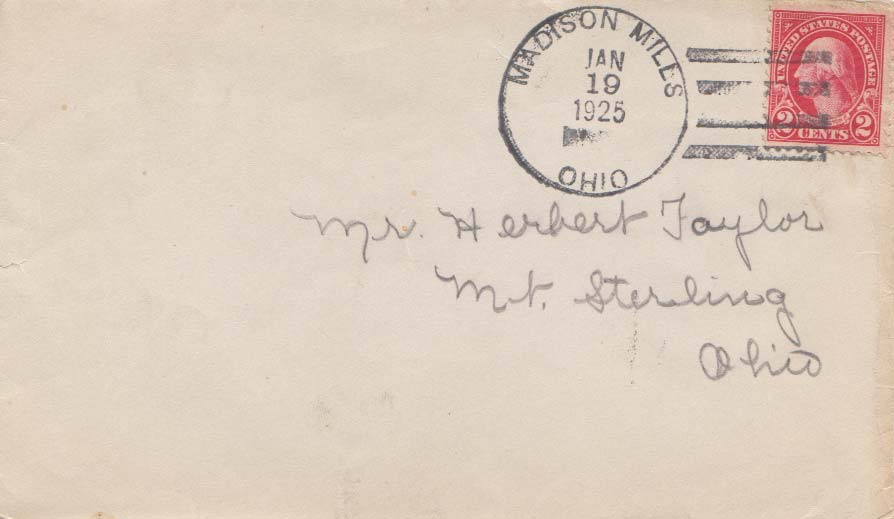 MADISON MILLS
JAN
19
1925
OHIO
UNITED STATES POSTAGE
2 CENTS 2
Mr. Herbert Taylor
Mt. Sterling
Ohio